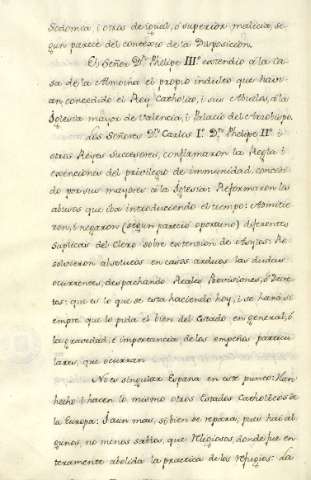 Sodomia, i otras de igual, ó superior malicia, se
gun parece del contexto de la Disposicion.
El Señor Dn. Phelipe III.º extendió a la Ca
sa de la Almoina el propio indulto que havi
an concedido el Rey Catholico, i sus Abuelos, á la
Iglesia mayor de Valencia, i Palacio del Arzobispo.
Los Señores Dn. Carlos Iº Dn. Phelipe IIº i
otros Reyes Successores, confirmaron la Regla i
exenciones del privilegio de immunidad, conced
do por sus mayores á la Iglesia: Reformaron los
abusos que iba introduciendo el tiempo: Admitie
ron, i negaron (segun pareció oportuno) diferentes
suplicas del Clero sobre extension de Asylos: Re
solvieron absolutas en casos arduos las dudas
ocurrentes, despachando Reales Provisiones, ó Decre
tos: que es lo que se está haciendo hoy, i se hará si
empre que lo pida el bien del Estado en general, ó
la gravedad, é importancia de los empeños particu
lares, que ocurran.
No es singular España en este punto: Han
hecho i hacen lo mismo otros Estados Catholicos de
la Europa: I aun mas, si bien se repara, pues hai al
gunos, no menos sabios, que Religiosos, donde fue en
teramente abolida la practica de los refugios: da